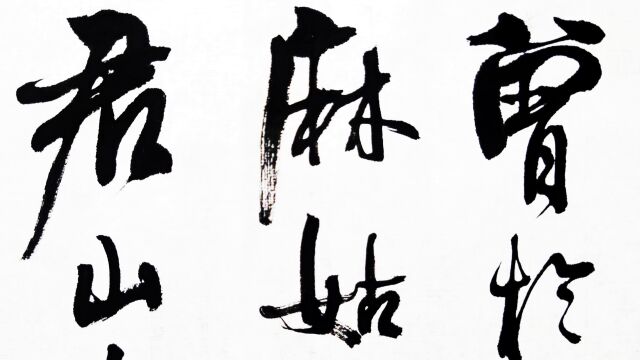 曾於
麻姑
君山